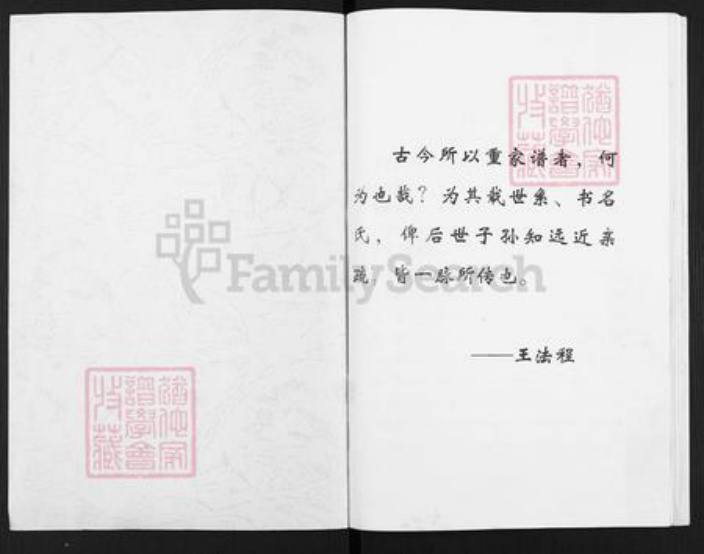 古今所以重家谱者，何
为也哉？为其载世系、书名
氏，俾后世子孙知远近亲
疏，皆一脉所传也。
——王法程
FamilySearch